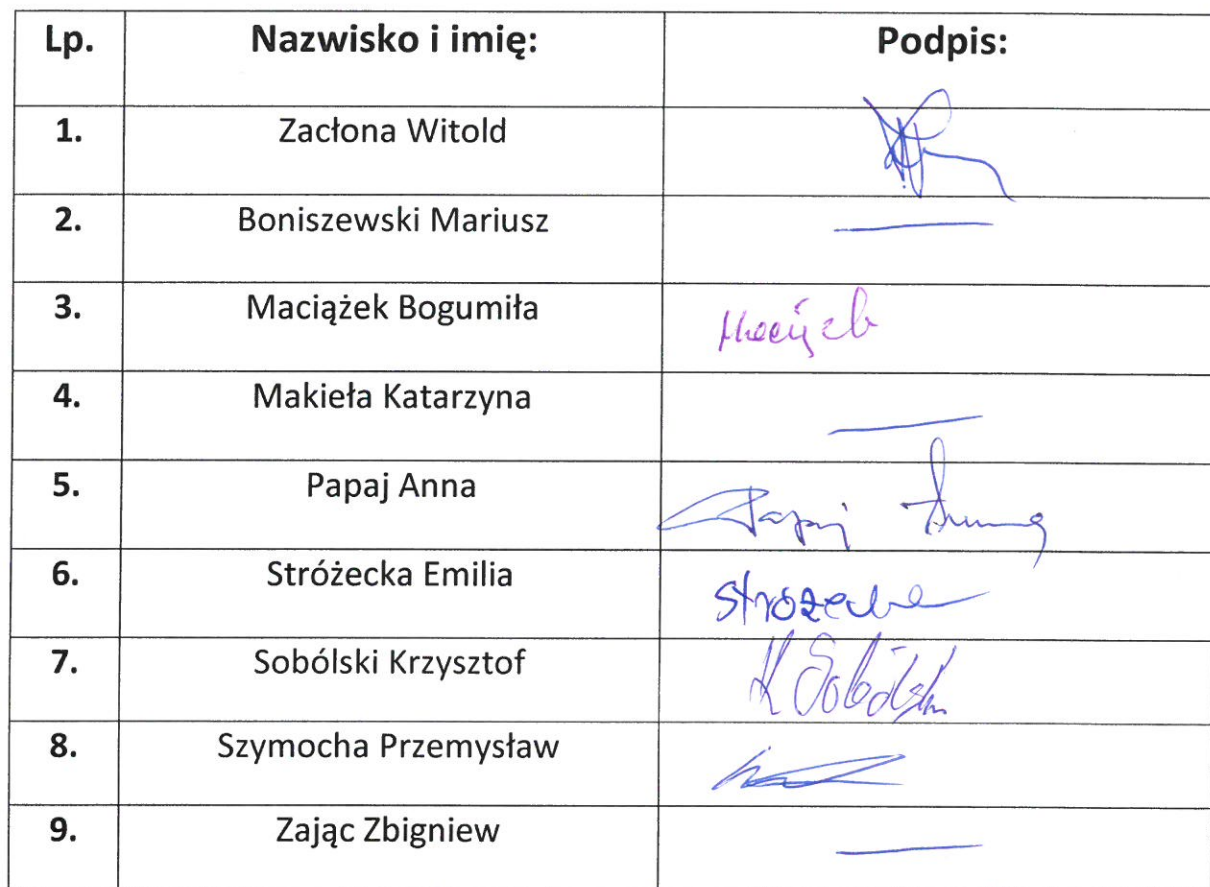 Lp. Nazwisko i imię: Podpis:
1. Zacłona Witold
2. Boniszewski Mariusz —
3. Maciążek Bogumiła
4. Makieła Katarzyna —
5. Papaj Anna Papaj Anna
6. Stróżecka Emilia Stróżecka
7. Sobólski Krzysztof K Sobólski
8. Szymocha Przemysław
9. Zając Zbigniew —